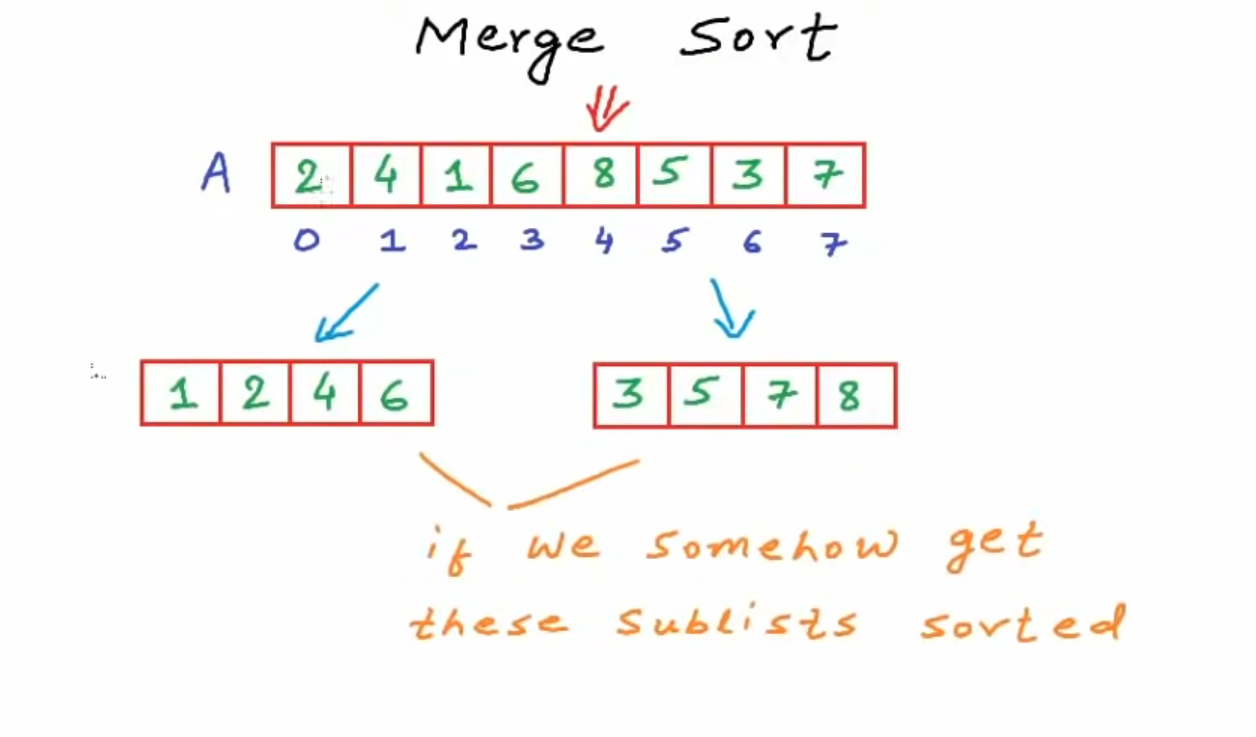 Merge Sort
A 2 4 1 6 8 5 3 7
0 1 2 3 4 5 6 7
1 2 4 6 3 5 7 8
if we somehow get
these sublists sorted